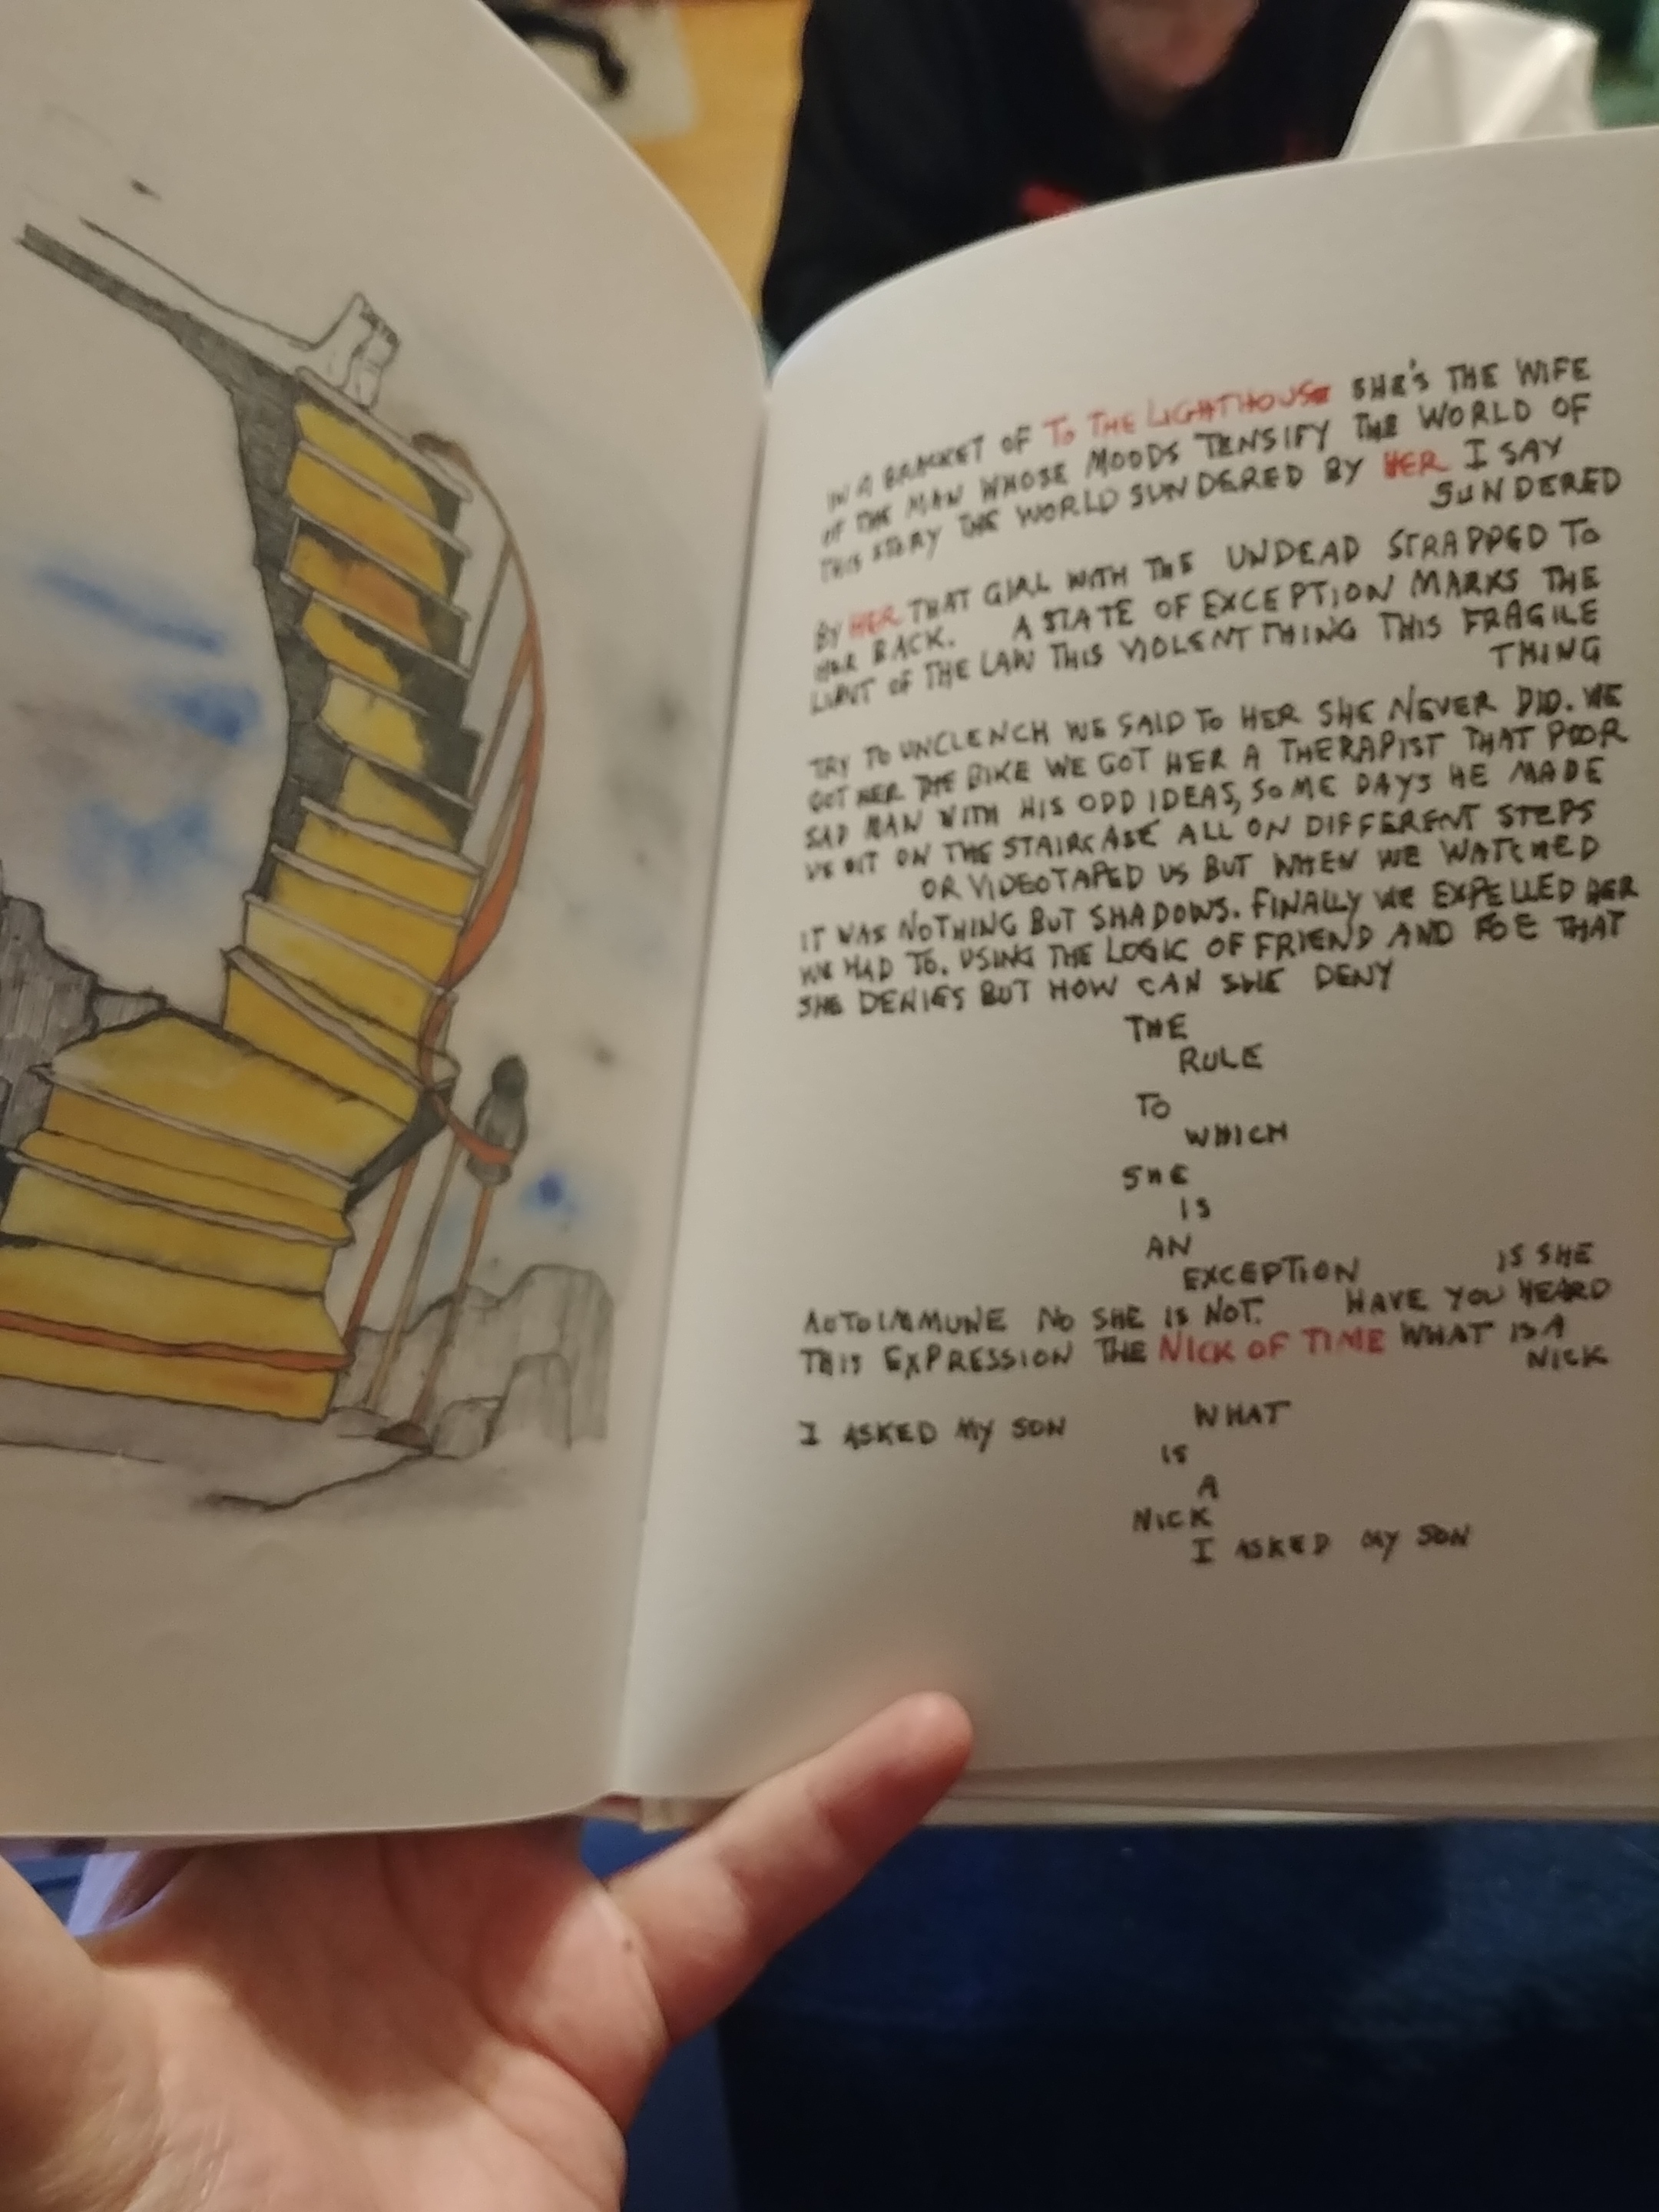 IN A BRACKET OF TO THE LIGHTHOUSE SHE'S THE WIFE
OF THE MAN WHOSE MOODS TENSIFY THE WORLD OF
THIS STORY THE WORLD SUNDERED BY HER I SAY
SUNDERED
BY HER THAT GIRL WITH THE UNDEAD STRAPPED TO
HER BACK. A STATE OF EXCEPTION MARKS THE
LIMIT OF THE LAW THIS VIOLENT THING THIS FRAGILE
THING
TRY TO UNCLENCH WE SAID TO HER SHE NEVER DID. WE
GOT HER THE BIKE WE GOT HER A THERAPIST THAT POOR
SAD MAN WITH HIS ODD IDEAS, SOME DAYS HE MADE
US SIT ON THE STAIRCASE ALL ON DIFFERENT STEPS
OR VIDEOTAPED US BUT WHEN WE WATCHED
IT WAS NOTHING BUT SHADOWS. FINALLY WE EXPELLED HER
WE HAD TO. USING THE LOGIC OF FRIEND AND FOE THAT
SHE DENIES BUT HOW CAN SHE DENY
THE
RULE
TO
WHICH
SHE
IS
AN
EXCEPTION IS SHE
AUTOIMMUNE NO SHE IS NOT. HAVE YOU HEARD
THIS EXPRESSION THE NICK OF TIME WHAT IS A
NICK
I ASKED MY SON WHAT
IS
A
NICK
I ASKED MY SON